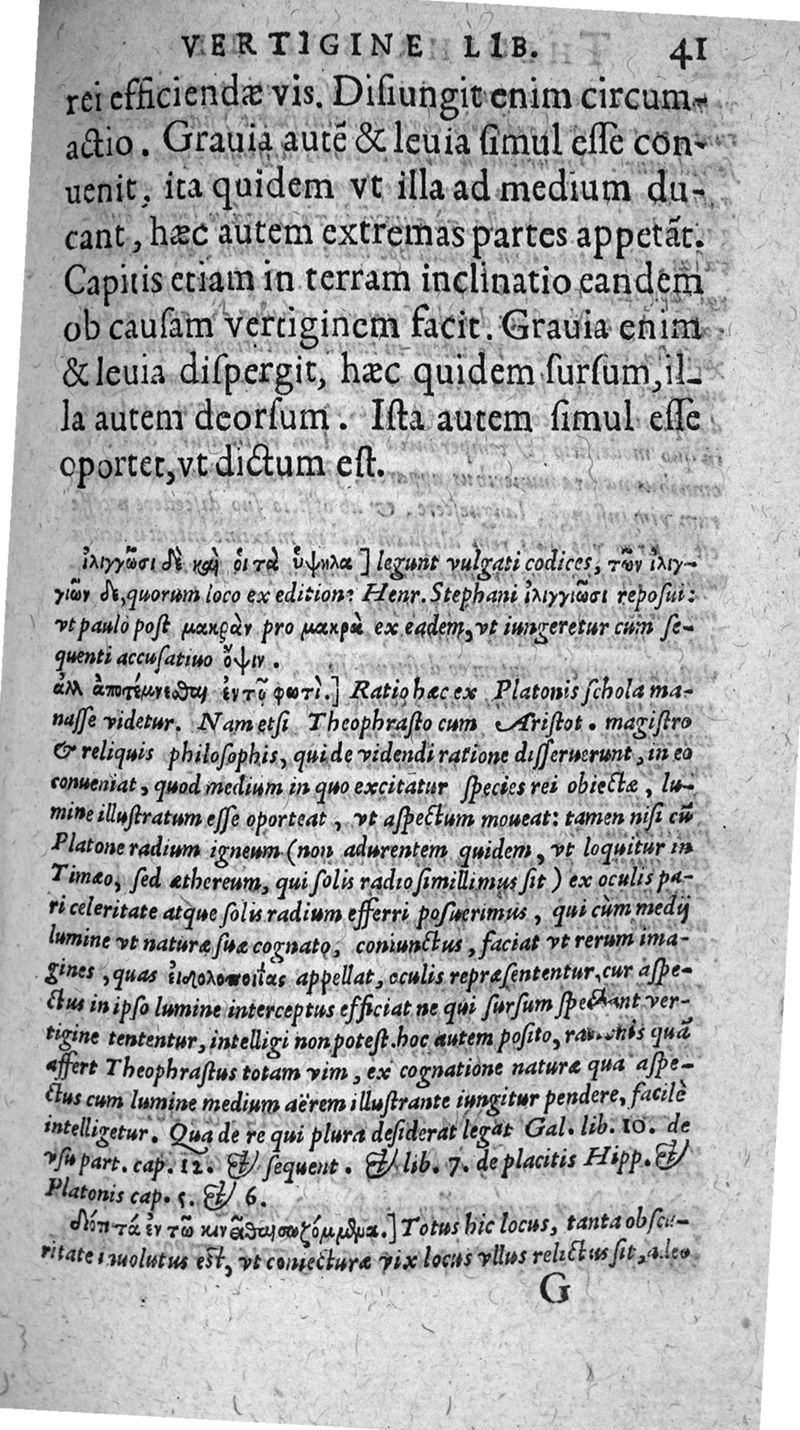 VERTIGINE LIB. 41
rei efficiendæ vis. Diſiungit enim circum-
actio. Grauia autẽ & leuia ſimul eſſe con-
uenit, ita quidem vt illa ad medium du-
cant, hæc autem extremas partes appetãt.
Capitis etiam in terram inclinatio eandem
ob cauſam vertiginem facit. Grauia enim
& leuia diſpergit, hæc quidem ſurſum, il-
la autem deorſum. Iſta autem ſimul eſſe
oportet, vt dictum eſt.
ἰλιγγῶσι δὲ καὶ οἱ τὰ ὑψηλα ] legunt vulgati codices, τῶν ἰλιγ-
γιῶν δὲ, quorum loco ex editione Henr. Stephani ἰλιγγιῶσι repoſui:
vt paulò poſt μακρὰν pro μακρὰ ex eadem, vt iungeretur cum ſe-
quenti accuſatiuo ὄψιν.
ἀλλ ἀποτέμνεσθαι ἐν τῷ φωτὶ.] Ratio hæc ex Platonis ſchola ma-
naſſe videtur. Nam etſi Theophraſto cum Ariſtot. magiſtro
& reliquis philoſophis, qui de videndi ratione diſſeruerunt, in eo
conueniat, quod medium in quo excitātur ſpecies rei obiectæ, lu-
mine illuſtratum eſſe oporteat, vt aſpectum moueat: tamen niſi cū
Platone radium igneum (non adurentem quidem, vt loquitur in
Timæo, ſed æthereum, qui ſolis radio ſimillimus ſit) ex oculis pa-
ri celeritate atque ſolis radium efferri poſuerimus, qui cùm medij
lumine vt naturæ ſuæ cognato, coniunctus, faciat vt rerum ima-
gines, quas appellat, oculis repræſententur, cur aſpe-
ctus in ipſo lumine interceptus efficiat ne qui ſurſum ſpectant ver-
tigine tententur, intelligi non poteſt. hoc autem poſito, rationis quā
affert Theophraſtus totam vim, ex cognatione naturæ qua aſpe-
ctus cum lumine medium aërem illuſtrante iungitur pendere, facilè
intelligetur. Qua de re qui plura deſiderat legat Gal. lib. 10. de
vſu part. cap. 12. & ſequent. & lib. 7. de placitis Hipp. &
Platonis cap. 5. & 6.
ἐν τῶ κινεῖσθαι σωζόμενα.] Totus hic locus, tanta obſcu-
ritate inuolutus eſt, vt coniecturæ vix locus vllus relictus ſit, adeo
G